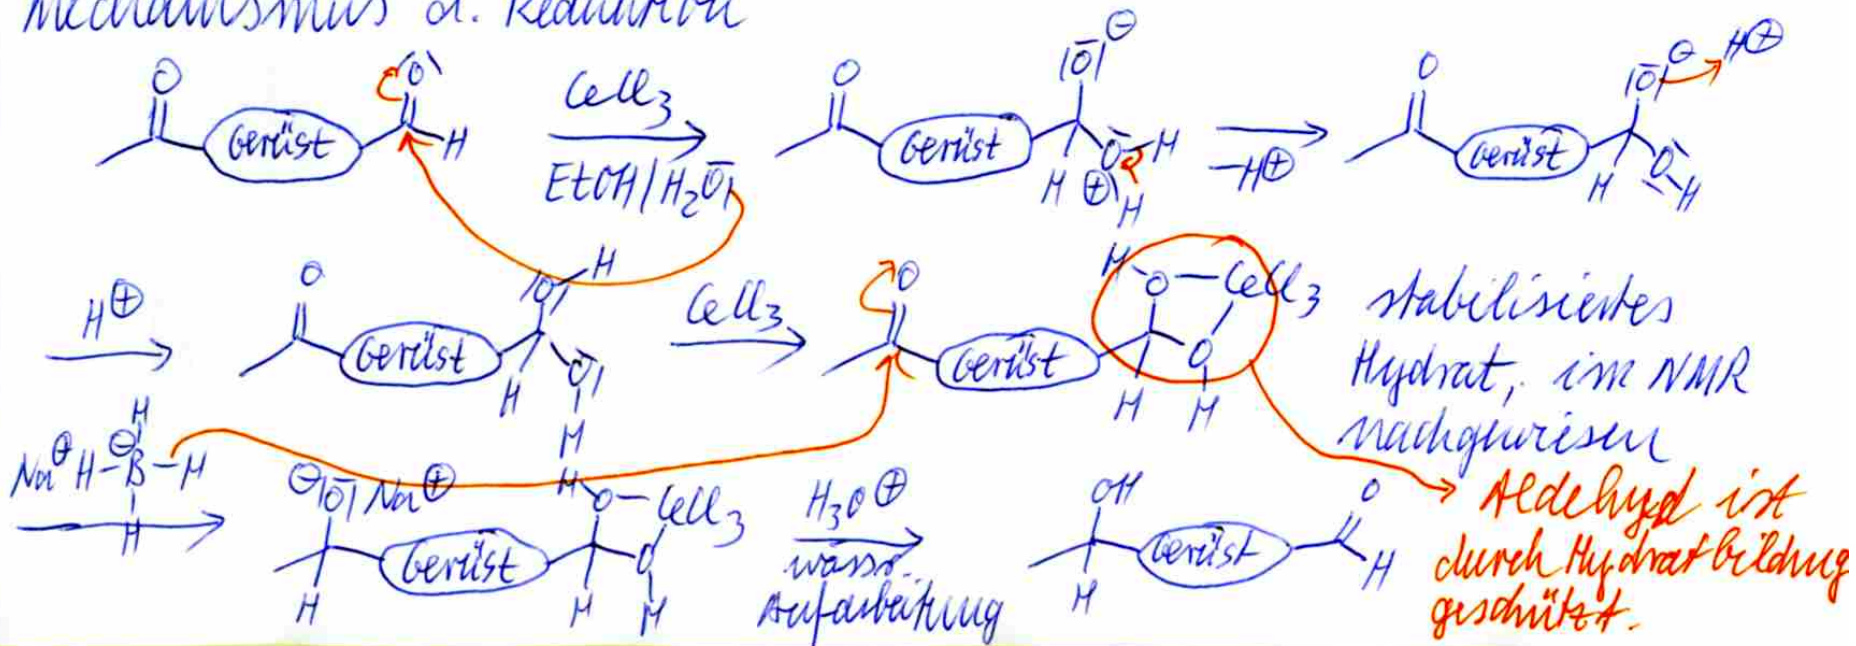 Mechanismus d. Reduktion
O Gerüst O H
CeCl3
EtOH/H2O
O Gerüst O⊖ O H H ⊕ H
-H⊕
O Gerüst O⊖ H⊕ H O H
H⊕
O Gerüst O H H O H
CeCl3
O Gerüst H O CeCl3 O H H
stabilisiertes
Hydrat, im NMR
nachgewiesen
Na⊕ H-B⊖-H H H
⊖O Na⊕ H Gerüst H O-CeCl3 O H H
H3O⊕
wässr.
Aufarbeitung
OH H Gerüst O H
Aldehyd ist
durch Hydratbildung
geschützt.